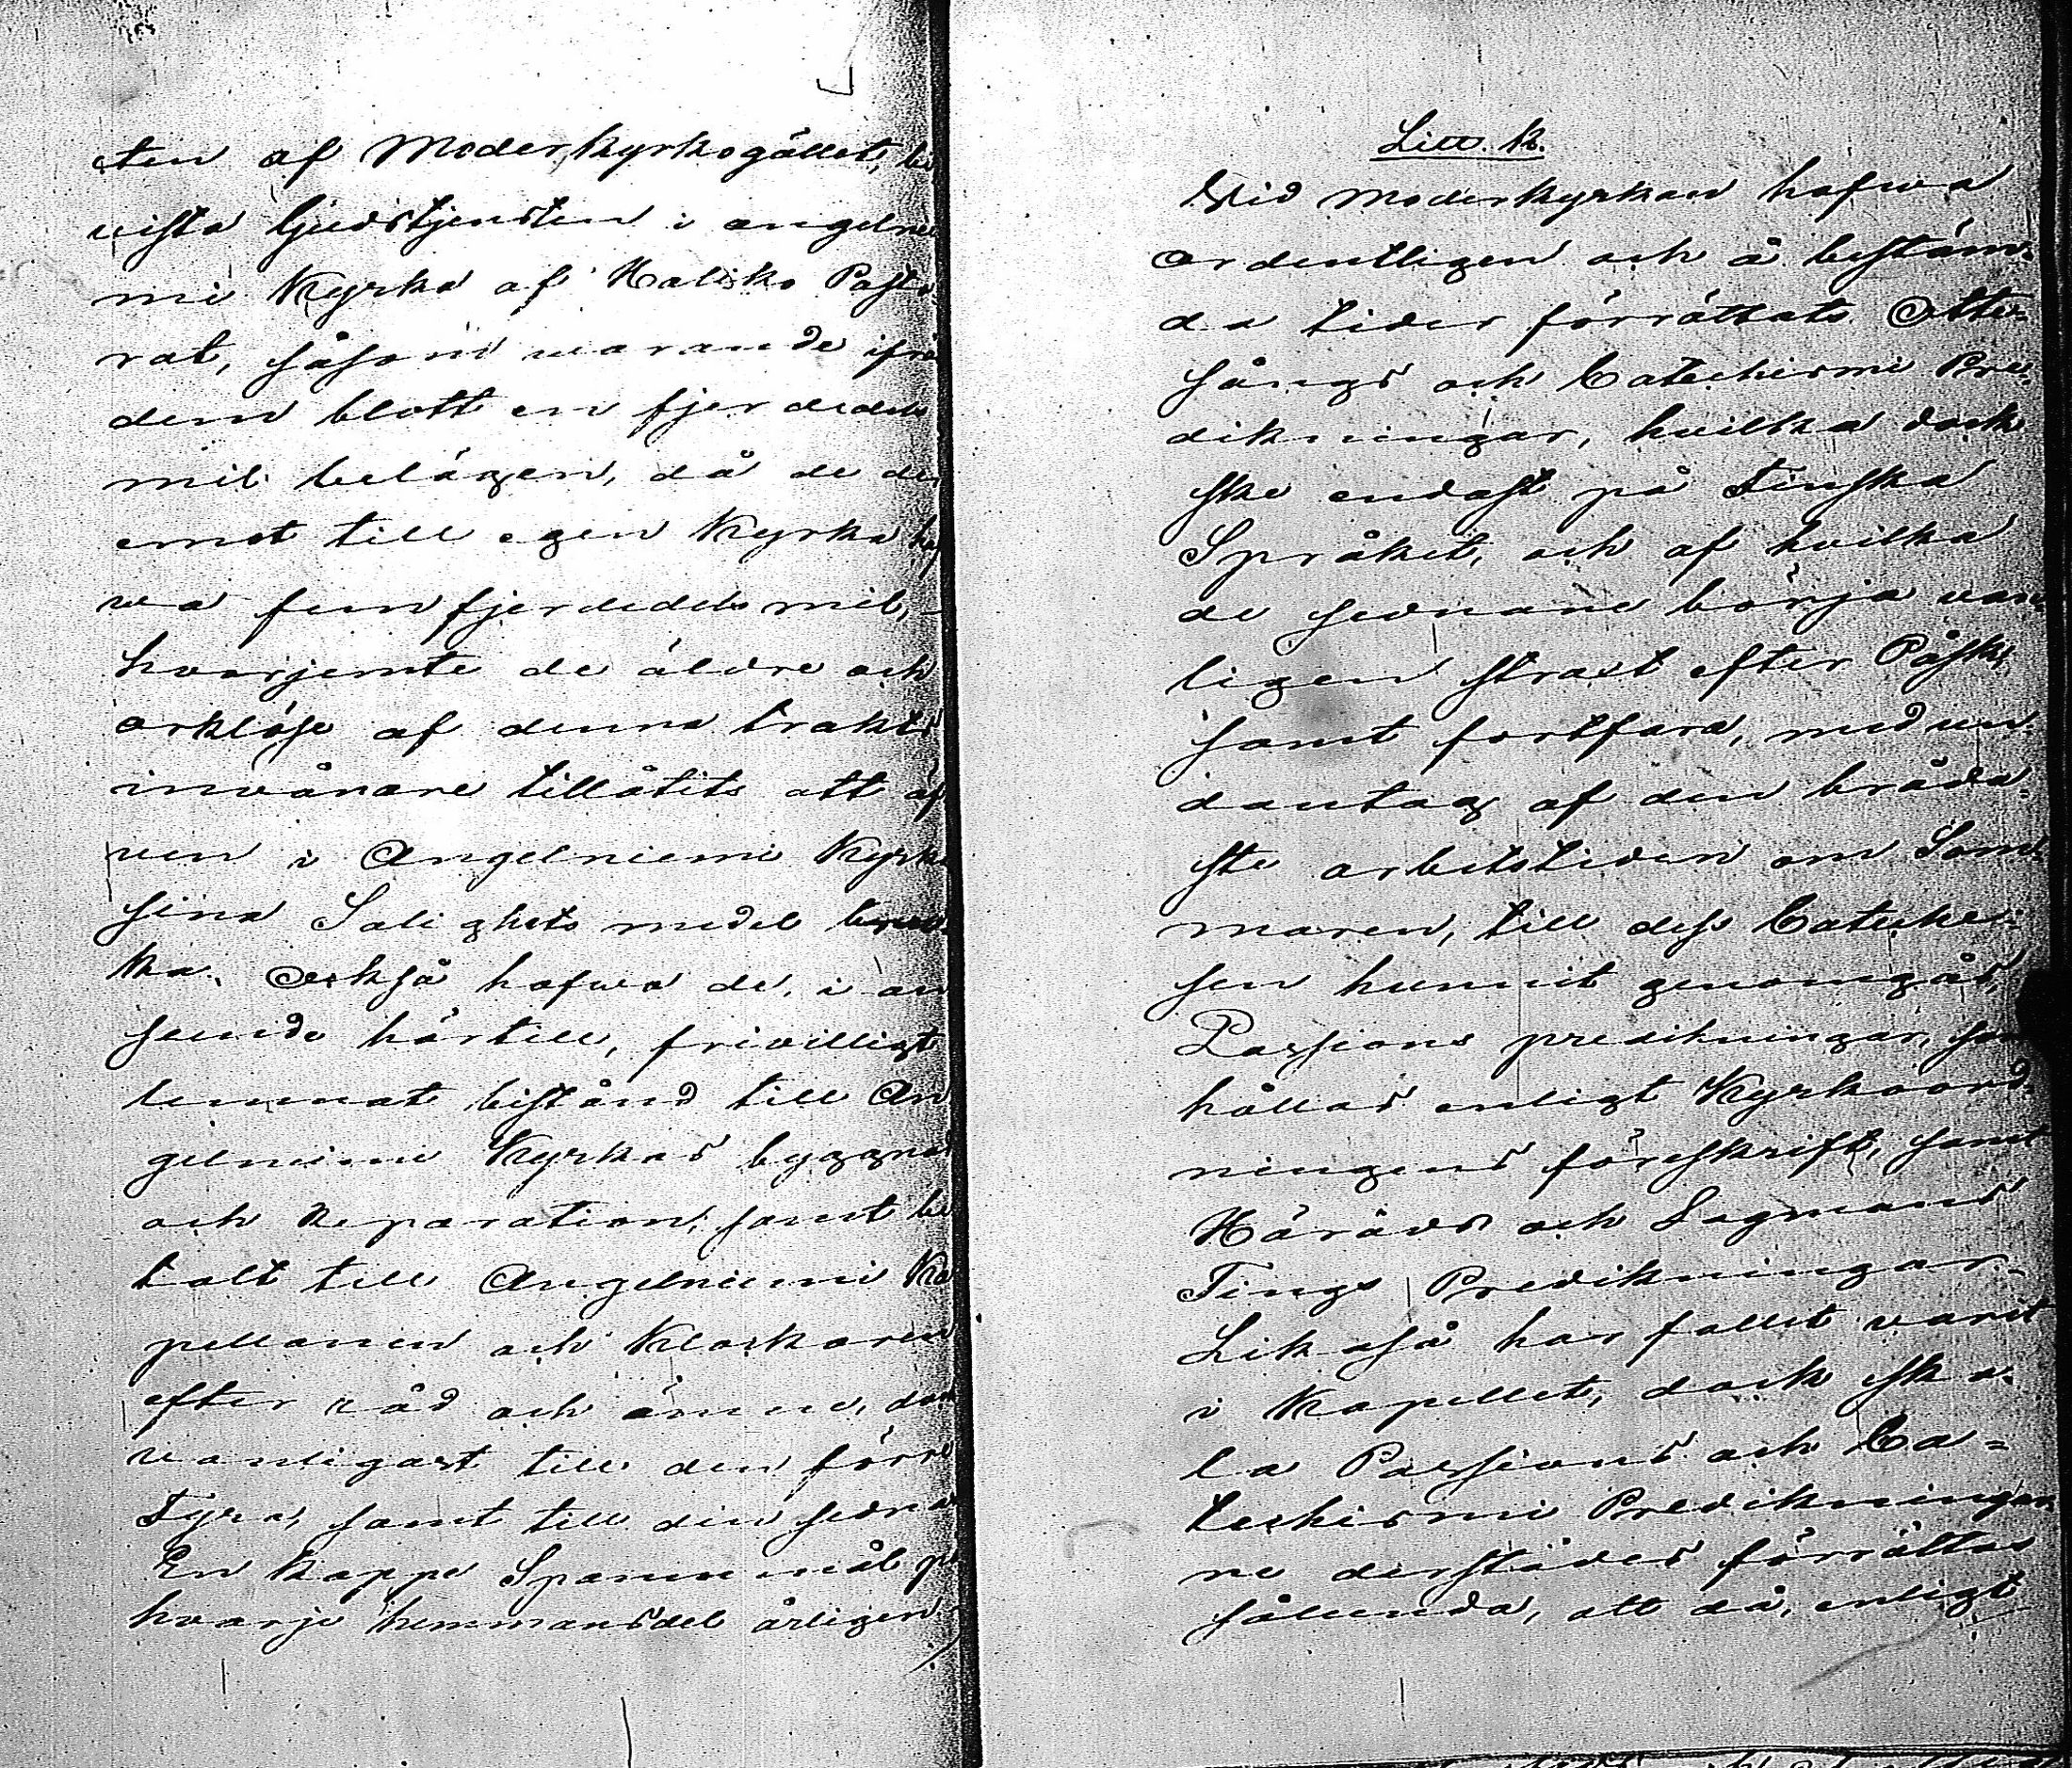 ten af Moderkyrkogället, be
vista Gudstjensten i angelnie
mi Kyrka af Haliko Pasto
rat, såsom warande ifrå
dem blott en fjerdedels
mil belägen, då de der
emot till egen Kyrka haf
wa fem fjerdedels mil,
hvarjemte de äldre och
orklöse af denna trakts
invånare tillåtits att äf
ven i Angelniemi Kyrka
sina Salighets medel bruk
ka. Också hafwa de, i an
seende härtill, friwilligt
lemnat bistånd till An
gelniemi Kyrkas byggnad
och Reparation, samt be
talt till Angelniemi Ka
pellanen och Klockaren
efter råd och ämne, dock
vanligast till den förre
Fyra, samt till den sedna
En kappe Spannmål på
hvarje hemmansdel årligen
Litt. K.
Vid Moderkyrkan hafwa
ordentligen och å bestäm-
da tider förrättats Otte-
sångs och Catechismi Pre-
dikningar, hvilka dock
ske endast på Finska
Språket, och af hvilka
de sednare börja van-
ligen straxt efter Påsk,
samt fortfara, med un-
dantag af den bråda-
ste arbetstiden om Som-
maren, till dess Cateche-
sen hunnit genomgås,
Passions predikningar, som
hållas enligt Kyrkoord-
ningens föreskrift, samt
Härads och Lagmans
Tings Predikningar.
Likaså har fallet varit
i Kapellet, dock sko-
la Passions och Ca-
techismi Predikningar
ne derstädes förrättas
sålunda, att då, enligt